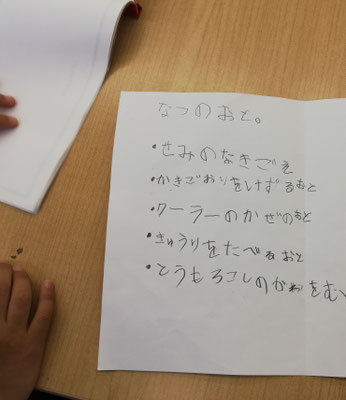 なつのおと。
・せみのなきごえ
・かきごおりをけずるおと
・クーラーのかぜのおと
・きゅうりをたべるおと
・とうもろコしのかわをむ